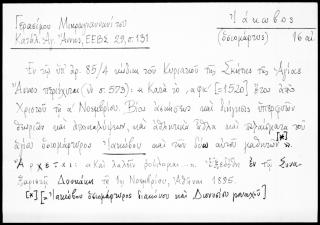 Γερασίμου Μικραγιαννανίτου
Κατάλ. Ἁγ. Ἄννης, ΕΕΒΣ 29, σ. 131
Ἰάκωβος
(ὁσιομάρτυς) 16 αἰ.
Ἐν τῷ ὑπ' ἀρ. 85/4 κώδικι τοῦ Κυριακοῦ τῆς Σκήτης τῆς Ἁγίας
Ἄννης περιέχεται (σ. 573): «Κατὰ τὸ ͵αφκ' [=1520] ἔτος ἀπὸ
Χριστοῦ τῇ α' Νοεμβρίου. Βίος καὶ διήγησις
θεωριῶν καὶ ἀποκαλύψεων, καὶ ἀθλητικῶν ἄθλων καὶ τοῦ
ἁγίου ὁσιομάρτυρος Ἰακώβου καὶ τῶν δύω αὐτοῦ μαθητῶν [*].
Ἄρχεται: «Καὶ λαλεῖν Ἐξεδόθη ἐν τῷ Συνα-
ξαριστῇ Δουκάκη τῇ 1ῃ Νοεμβρίου, Ἀθῆναι 1895.
[*] [= Ἰακώβου ὁσιομάρτυρος διακόνου καὶ Διονυσίου μοναχοῦ]